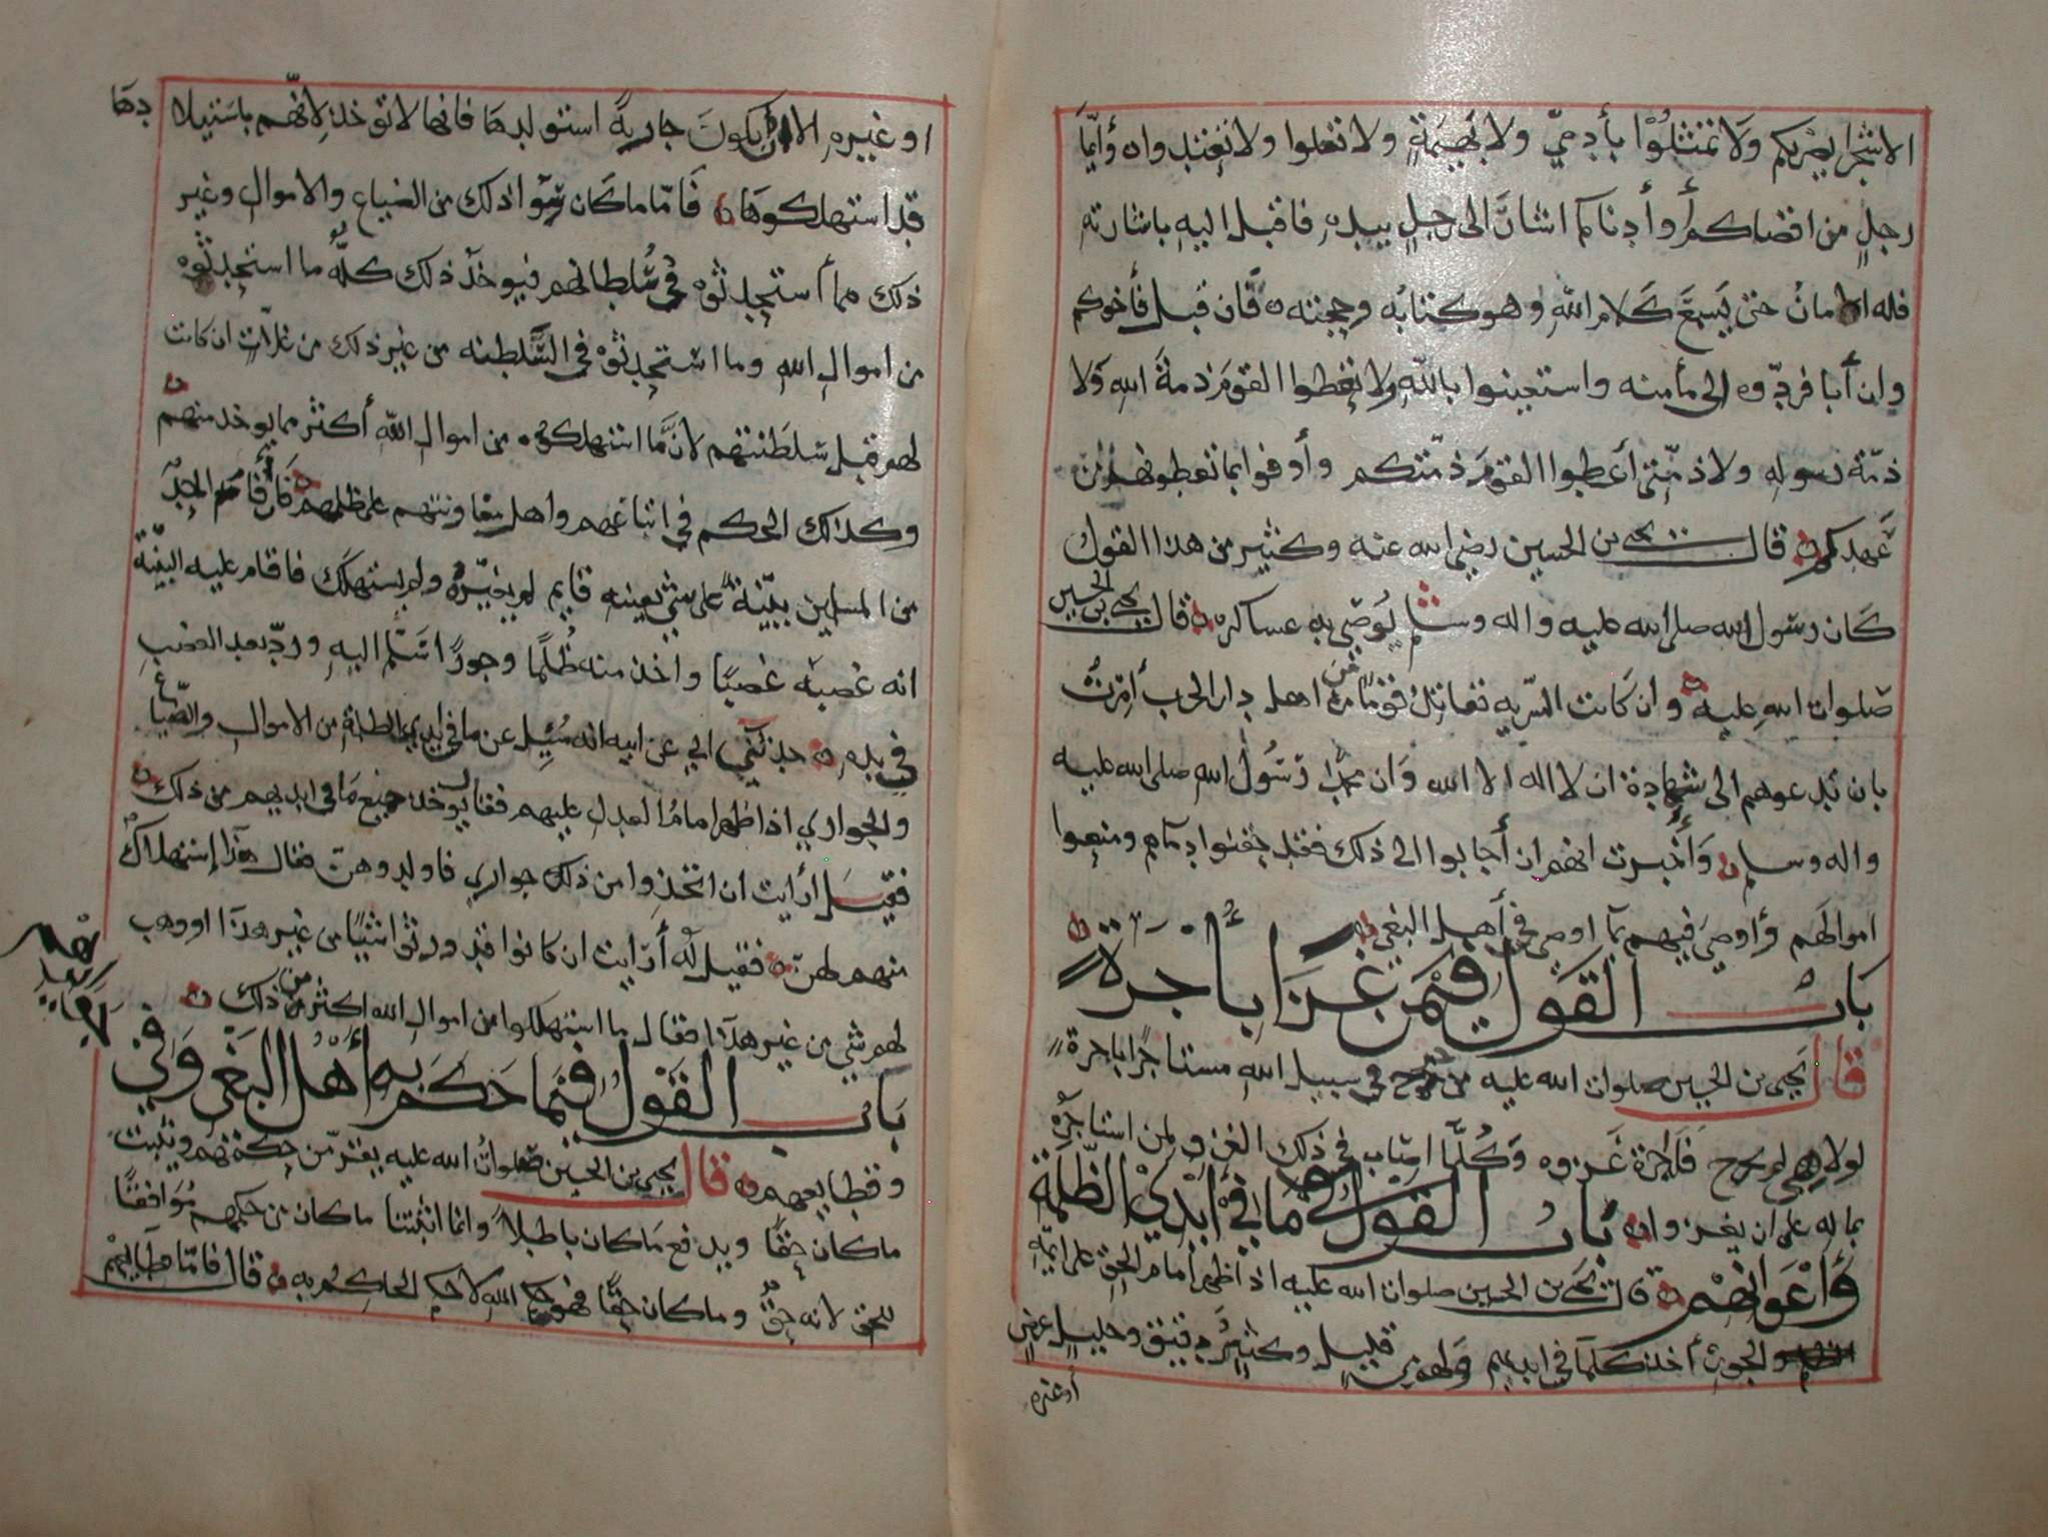 الا شجرا يضر بكم ولا تمثلوا بأدمي ولا بهيمة ولا تغلوا ولا تعتدوا ه وأيما
رجل من اقصاكم أو أدناكم اشار الى رجل بيده فاقبل اليه باشارته
فله الامان حتى يسمع كلام الله وهو كتابه وحجته ه فان قبل فأخوكم
وان أبا فردوه الى مأمنه واستعينوا بالله ولا تعطوا القوم ذمة الله ولا
ذمة رسوله ولا ذمتي أعطوا القوم ذمتكم وأوفوا بما تعطونهم من
عهدكم ه قال يحيى بن الحسين رضي الله عنه وكثير من هذا القول
كان رسول الله صلى الله عليه واله وسلم يوصي به عساكره ه قال يحيى بن الحسين
صلوات الله عليه ه وان كانت السرية تقاتل قوما من اهل دار الحرب أمرت
بان تدعوهم الى شهادة ان لا اله الا الله وان محمدا رسول الله صلى الله عليه
واله وسلم ه وأخبرت انهم ان أجابوا الى ذلك فقد حقنوا دماهم ومنعوا
اموالهم وأوصي فيهم بما اوصي في أهل البغي ه
باب القول فيمن غزا بأجرة ه
قال يحيى بن الحسين صلوات الله عليه من خرج في سبيل الله مستاجرا باجرة
لولا هي لم يخرج فاجرة غزوه وكلما اصاب في ذلك الغزو لمن استاجره
بماله على ان يغزو له ه باب القول في ما في أيدي الظلمة
وأعوانهم ه قال يحيى بن الحسين صلوات الله عليه اذا ظهر امام الحق على ايمة
الجور أخذ كلما في ايديهم ولهم من قليل وكثير دقيق وجليل عرض
أو غيره
او غيره الا ان يكون جارية استولدها فانها لا توخذ لانهم باستيلادها
قد استهلكوها ه فاما ما كان سوا ذلك من الضياع والاموال وغير
ذلك مما أستحدثوه في سلطانهم فيوخذ ذلك كله ما استحدثوه
من اموال الله وما استحدثوه في السلطنة من غير ذلك من تلاث ان كانت
لهم قبل سلطنتهم لان ما استهلكوه من اموال الله أكثر مما يوخذ منهم ه
وكذلك الحكم في اتباعهم واهل معاونتهم على ظلمهم ه فان أقام احد
من المسلمين بينة على شي بعينه قايم لم يغيره ولم يستهلك فاقام عليه البينة
انه غصبه غصبا واخذ منه ظلما وجورا اسلم اليه ورد بعد الغصب
في يده ه حدثني ابي عن ابيه انه سيل عن ما في ايدي الظلمة من الاموال والضياع
والجواري اذا ظهر امام العدل عليهم فقال يوخذ جميع ما في ايديهم من ذلك ه
فقيل أرأيت ان اتخذوا من ذلك جواري فاولدوهن فقال هذا إستهلاك
منهم لهن ه فقيل له أرأيت ان كانوا قد ورثوا شيا من غير هذا او وهب
لهم شي من غير هذا فقال ما استهلكوا من اموال الله اكثر من ذلك ه
باب القول فيما حكم به أهل البغي وفي
وقطايعهم ه قال يحيى بن الحسين صلوات الله عليه يقر من حكمهم ويثبت
ما كان حقا ويدفع ما كان باطلا وانما اثبتنا ما كان من حكمهم موافقا
للحق لانه حق وما كان حقا فهو حكم الله لا حكم الحاكم به ه قال فاما مطالبهم